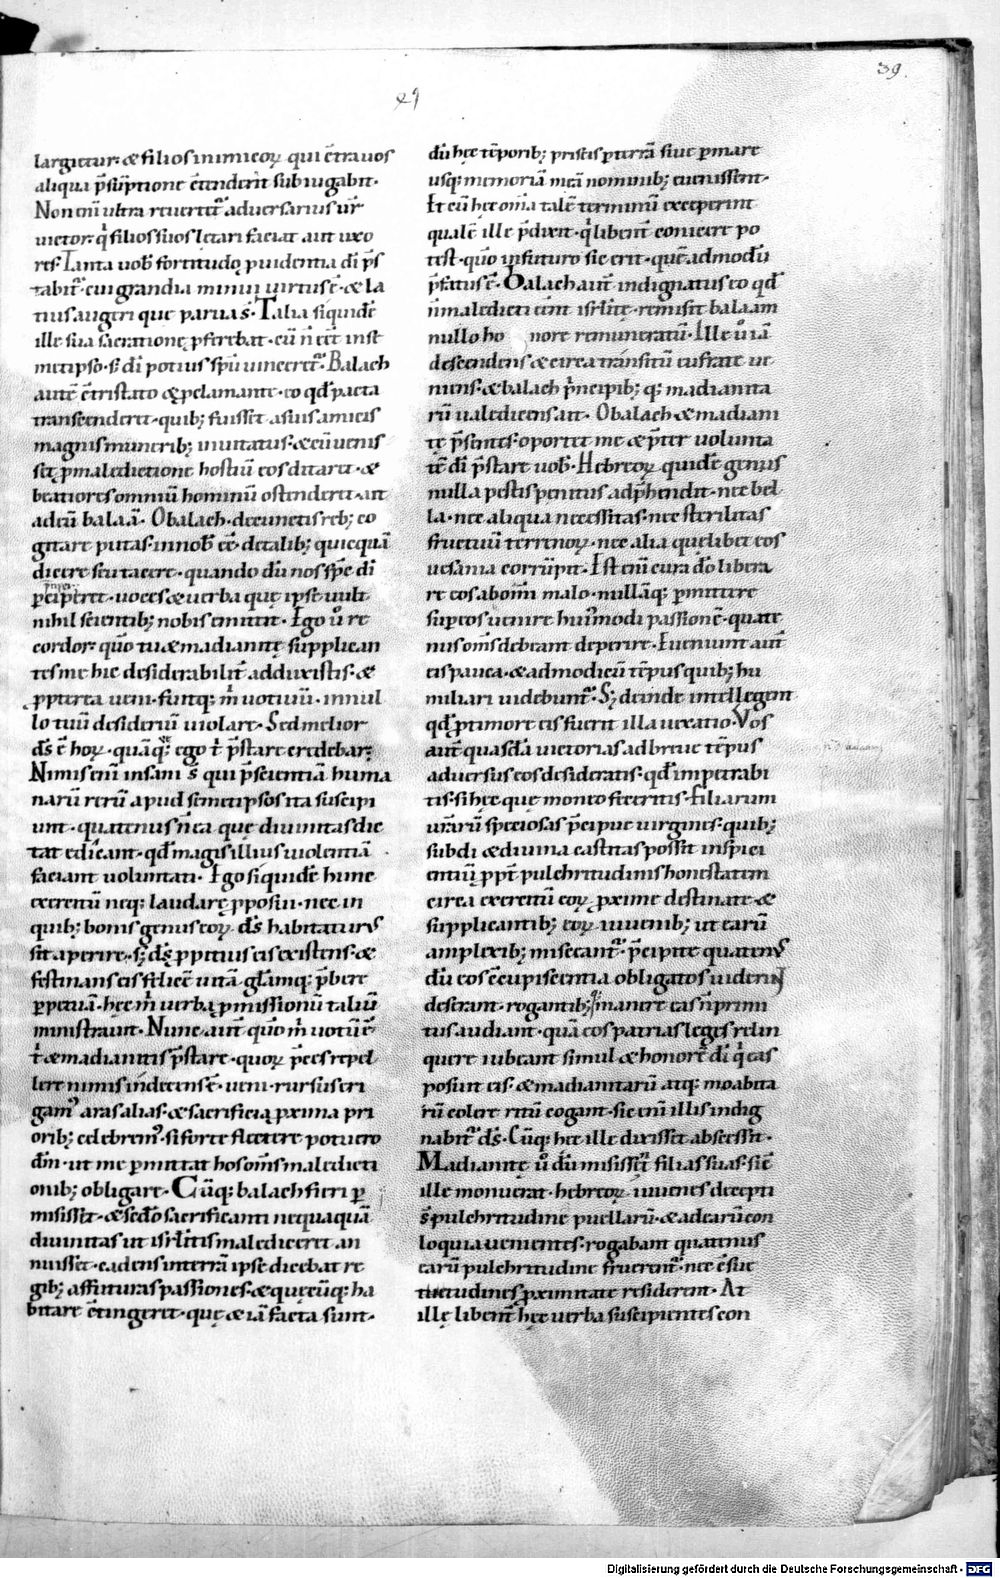 39.
29
largietur. & filios inimicoꝝ qui c̄tra uos
aliqua p̄sūptione c̄tenderīt subiugabit.
Non enī ultra reuertet᷑ aduersarius ur̄
uictor. q̄ filios suos letari faciat aut uxo
res. Tanta uob̄ fortitudo ꝓuidentia dī p̄s
tabit᷑. cui grandia minui uirtus ē. & la
tius augeri que parua s̄. Talia siquidē
ille sua sacratione ꝓferebat. cū n̄ eēt in se
metipso. s; dī potius sp̄u uinceret᷑. Balach
autē c̄tristato & ꝓclamante. eo qđ pacta
transcenderet. quib; fuisset a suis amicis
magnis munerib; inuitatus. & cū uenis
set ꝓ maledictione hostiū eos ditaret. &
beatiores omniū hominū ostenderet. ait
ad eū balaā. O balach. de cunctis reb; co
gitare putas. in nob̄ eē. de talib; quicquā
dicere seu tacere. quando dū nos sp̄c dī
p̄ceperet. uoces & uerba quę ipse uult
nihil scientib; nobis emittit. Ego ů re
cordor. quō tu & madianitę supplican
tes me hic desiderabilit̄ adduxistis. &
ꝓpterea ueni. fuitq; m̄ uotiuū. in nul
lo tuū desideriū uiolare. Sed melior
ds̄ ē hoꝝ. quā q̄ ego t̄ p̄stare credebar.
Nimis enī insani s̄ qui p̄scientiā huma
narū rerū apud semetipsos ita suscipi
unt. quatenus n̄ ea quę diuinitas dic
tat edicant. qđ magis illius uiolentiā
faciant uoluntati. Ego siquidē hunc
exercitū neq; laudare ꝓposui. nec in
quib; bonis genus eoꝝ ds̄ habitaturus
sit aperire. s; ds̄ ꝓpitius eis existens. &
festinans eis felicē uitā gl̄amq; p̄bere
ꝑpetuā. hęc m̄ uerba ꝓmissionū taliū
ministrauit. Nunc aut̄ quō m̄ uotū ē
t̄ & madianitis p̄stare. quoꝝ p̄ces repel
lere nimis indecens ē. ueni. rursus eri
gam᷑ aras alias. & sacrificia ꝓxima pri
orib; celebrem᷑. si forte flectere potuero
dm̄. ut me ꝑmittat hos om̄s maledicti
onib; obligare. Cūq; balach fieri ꝑ
misisset. & sedō sacrificanti nequaquā
diuinitas ut isrl̄itis malediceret an
nuisset. cadens in terrā ipse dicebat re
gib; affuturas passiones. & quęcūq; ha
bitare c̄tingeret. quę & iā facta sunt.
dū hęc tēporib; pristis ꝑ terrā siue ꝑ mare
usq; memoriā meā nominib; euenissent.
Et cū hęc om̄a talē terminū exceperint
qualē ille p̄dixit. q̄libent̄ conicere po
test. quō in futuro sic erit. quēadmodū
p̄fatus ē. Balach aut̄ indignatus eo qđ
n̄ maledicti eēnt isrl̄itę. remisit balaam
nullo honore remuneratū. Ille ů iā
descendens & circa transitū eufrate ue
niens. & balach p̄ncipib; q; madianita
rū ualedicens ait. O balach & madiani
tę p̄sentes. oportet me & p̄ter uolunta
tē dī p̄stare uob̄. Hebreoꝝ quidē genus
nulla pestis penitus adp̄hendit. nec bel
la. nec aliqua necessitas. nec sterilitas
fructuū terrenoꝝ. nec alia quęlibet eos
uesania corrūpit. Est enī cura dō libera
re eos ab om̄i malo. nullāq; ꝑmittere
sup eos uenire huim̄odi passionē. quate
nus om̄s debeant deperire. Eueniunt aut̄
eis pauca. & ad modicū tēpus quib; hu
miliari uidebunt᷑. S; deinde intellegent
qđ ꝓ timore eis fuerit illa uexatio. Vos
aut̄ quasdā uictorias ad breue tēpus
aduersus eos desideratis. qđ impetrabi
tis. si hęc quę moneo feceritis. Filiarum
urārū speciosas p̄cipue uirgines. quib;
subdi & diuina castitas possit inspici
entiū ꝓpt̄ pulchritudinis honestatem
circa exercitū eoꝝ ꝓxime destinate &
supplicantib; eoꝝ iuuenib; ut earū
amplexib; miscant᷑. p̄cipite quatenus
dū eos c̄cupiscentia obligatos uiderint
deserant. rogantib; q; manere eas n̄ prim
tus audiant. quā eos patrias leges relin
quere iubeant simul & honorē dī q̄ eas
posuit eis. & madianitarū atq; moabita
rū colere ritū cogant. sic enī illis indig
nabit᷑ ds̄. Cūq; hęc ille dixisset abscessit.
Madianitę ů dū misissent filias suas. sic
ille monuerat. hebreoꝝ iuuenes decepti
s̄ pulchritudine puellarū. & ad earū con
loquia uenientes. rogabant quatenus
earū pulchritudine fruerent᷑. nec c̄sue
tudines ꝓximitate residerent. At
illę libent̄ hęc uerba suscipientes con
Digitalisierung gefördert durch die Deutsche Forschungsgemeinschaft · DFG